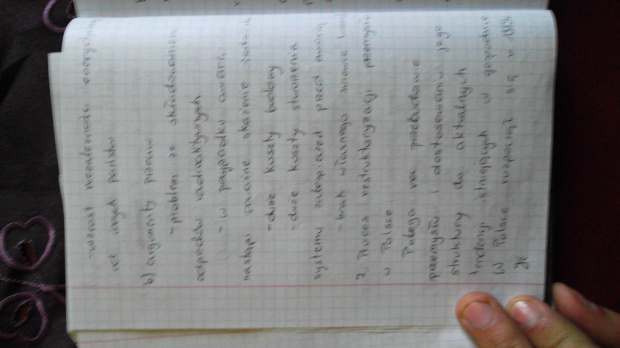 -wzrost niezależności energetycznej
od innych państw
b) argumenty przeciw
-problem ze składowaniem
odpadów radioaktywnych
- w przypadku awarii
nastąpi znaczne skażenie
-duże koszty budowy
-duże koszty stworzenia
systemu zabezpieczeń przed awarią
- brak własnego
7. Proces restrukturyzacji przemysłu
w Polsce
Polega na przebudowie
przemysłu i dostosowaniu jego
struktury do aktualnych
tendencji istniejących w gospodarce
W Polsce rozpoczął się w